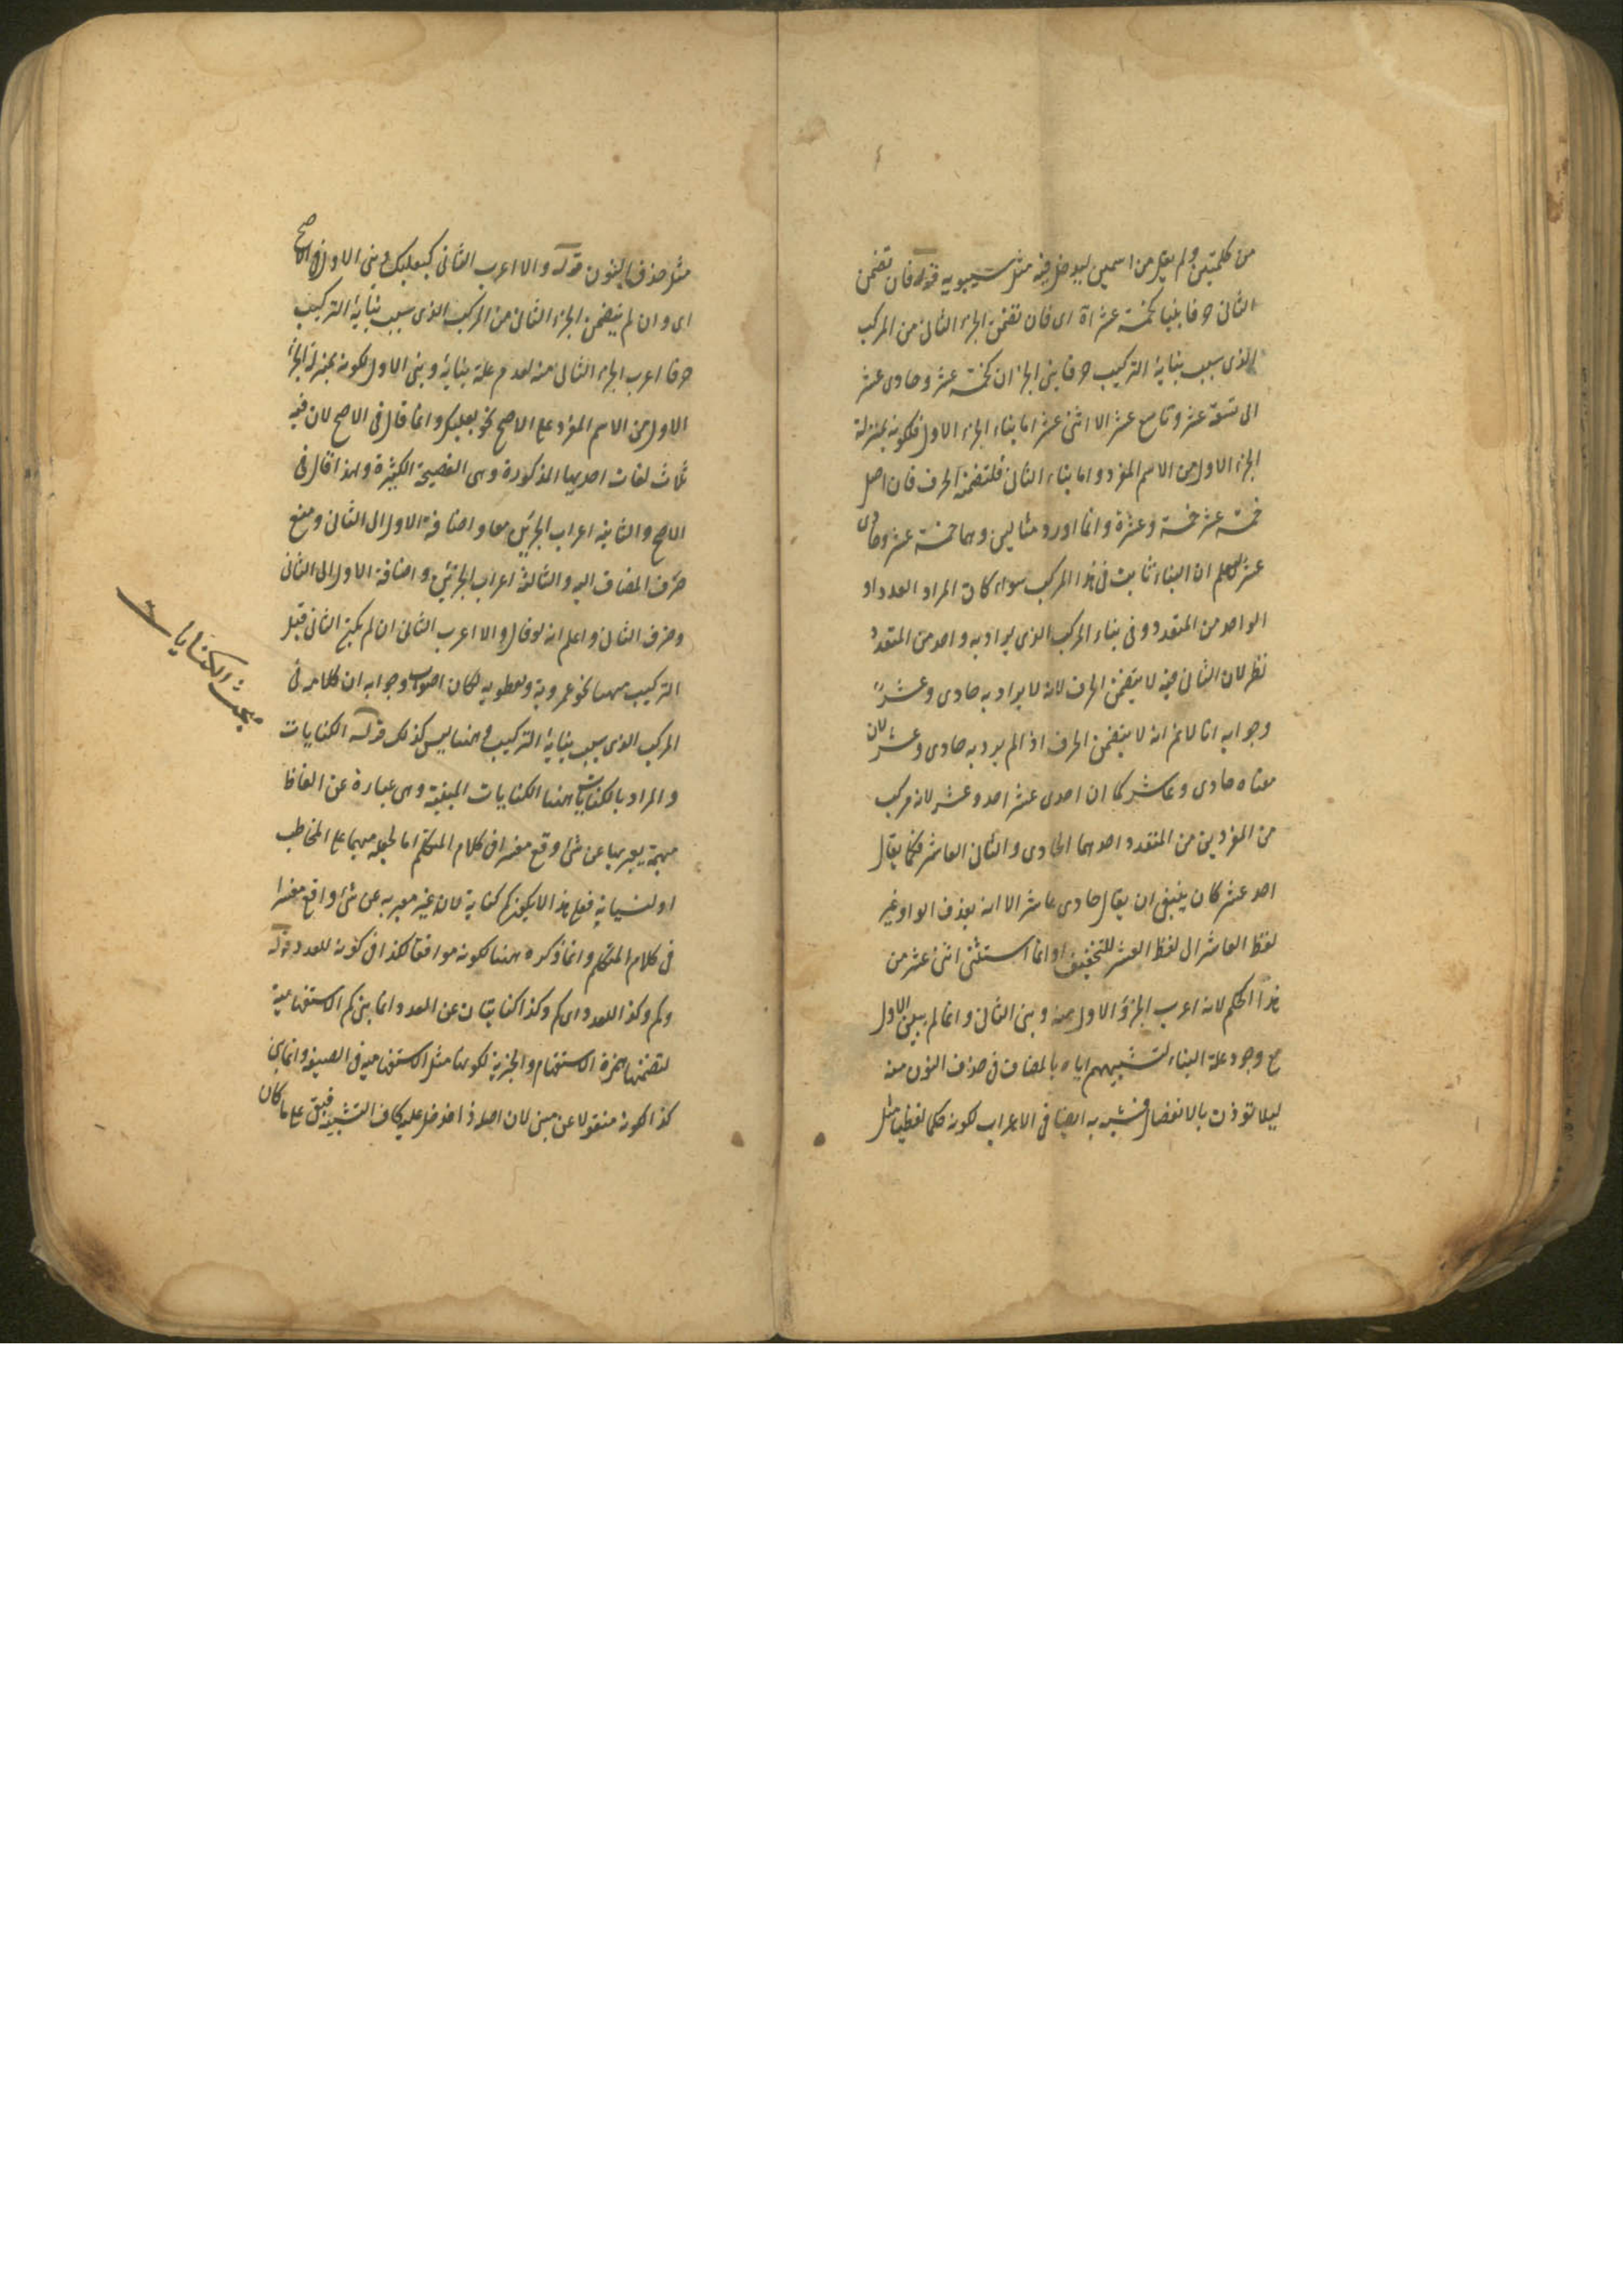 من كلمتين ولم يقل من اسمين ليدخل فيه مثل سيبويه قوله فان تضمن
الثانى حرفا بنيا كخمسة عشر اه اى فان تضمن الجزء الثانى من المركب
الذى سبب بنائه التركيب حرفا بنى الجزءان كخمسة عشر وحادى عشر
الى تسعة عشر وتاسع عشر الا اثنى عشر اما بناء الجزء الاول فلكونه بمنزلة
الجزء الاول من الاسم المفرد واما بناء الثانى فلتضمنه الحرف فان اصل
خمسة عشر خمسة وعشرة وانما اورد مثالين وهما خمسة عشر وحادى
عشر ليعلم ان البناء ثابت فى هذا المركب سواء كان المراد العدد او
الواحد من المتعدد وفى بناء المركب الذى يراد به واحد من المتعدد
نظر لان الثانى فيه لا يتضمن الحرف لانه لا يراد به حادى وعشر
وجوابه انا لانم انه لا يتضمن الحرف اذ الم يرد به حادى وعشر لان
معناه حادى وعاشر كما ان احدى عشر احد وعشر لانه مركب
من المفردين من المتعدد احدهما الحادى والثانى العاشر فكما يقال
احد عشر كان ينبغى ان يقال حادى عاشر الا انه بحذف الواو غير
لفظ العاشر الى لفظ العشر للتخفيف وانما استثنى اثنى عشر من
هذا الحكم لانه اعرب الجزؤ الاول منه وبنى الثانى وانما لم يبن الاول
مع وجود علة البناء لتشبيههم اياه بالمضاف فى حذف النون منه
ليلا تؤذن بالانفصال فشبه به ايضا فى الاعراب لكونه حكما لفظيا مثل
مثل حذف النون قوله والا اعرب الثانى كبعلبك وبنى الاول فى الاصح
اى وان لم يتضمن الجزء الثانى من المركب الذى سبب بنائه التركيب
حرفا اعرب الجزء الثانى منه لعدم علة بنائه وبنى الاول لكونه بمنزلة الجزء
الاول من الاسم المفرد على الاصح نحو بعلبك وانما قال فى الاصح لان فيه
ثلاث لغات احديها المذكورة وهى الفصيحة الكثيرة ولهذا قال فى
الاصح والثانية اعراب الجزئين معا واضافة الاول الى الثانى ومنع
صرف المضاف اليه والثالثة اعراب الجزئين واضافة الاول الى الثانى
وصرف الثانى واعلم انه لو قال والا اعرب الثانى ان لم يكن الثانى قبل
التركيب مبنيا نحو عمرويه ونفطويه لكان اصوب وجوابه ان كلامه فى
المركب الذى سبب بنائه التركيب وههنا ليس كذلك قوله الكنايات
والمراد بالكنايات ههنا الكنايات المبنية وهى عبارة عن الفاظ
مبهمة يعبر بها عن شئ وقع مفسرا فى كلام المتكلم اما لجعله مبهما على المخاطب
او لنسيانه فعلى هذا لا يكون كم كناية لانه غير معبر به عن شئ واقع مفسرا
فى كلام المتكلم وانما ذكره ههنا لكونه موافقا لكذا فى كونه للعدد قوله
وكم وكذا للعدد اى كم وكذا كنايتان عن العدد وانما بنى كم الاستفهامية
لتضمنها همزة الاستفهام والخبرية لكونها مثل الاستفهامية فى الصيغة وانما بنى
كذا لكونه منقولا عن مبنى لان اصله ذا فدخل عليه كاف التشبيه فبقى على ما كان
مبحث الكنايات